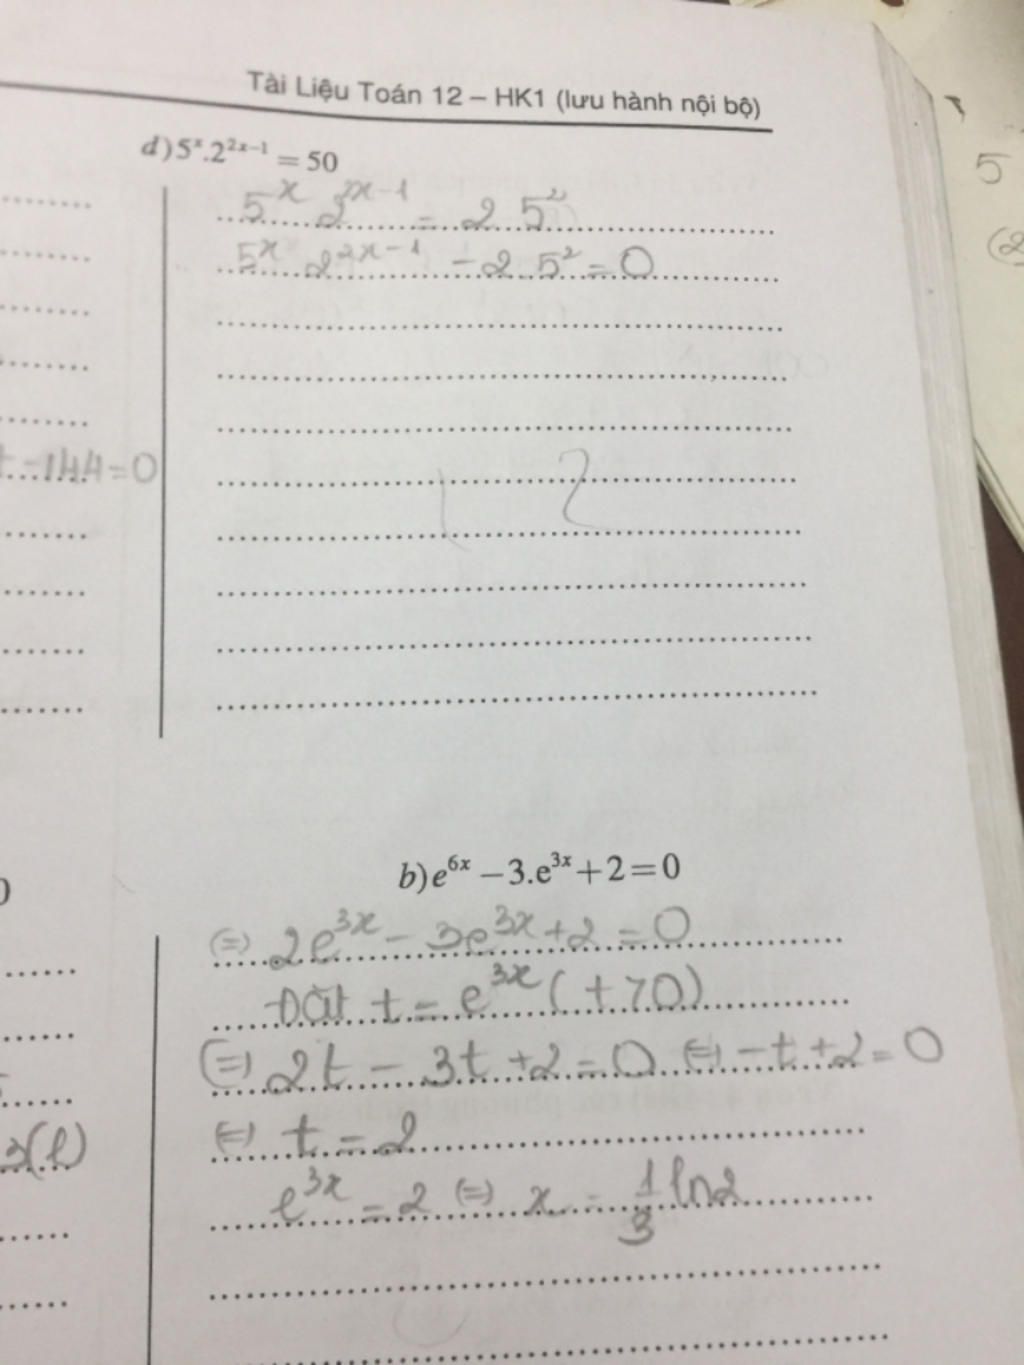 Tài Liệu Toán 12 – HK1 (lưu hành nội bộ)
d) 5ˣ.2²ˣ⁻¹ = 50
5ˣ 2²ˣ⁻¹ = 2 5²
5ˣ 2²ˣ⁻¹ - 2 5² = 0
t - 144 = 0
b) e⁶ˣ – 3.e³ˣ + 2 = 0
(=) 2e³ˣ - 3e³ˣ + 2 = 0
Đặt t = e³ˣ (t > 0)
(=) 2t - 3t + 2 = 0 (=) -t + 2 = 0
(=) t = 2
3(l)
e³ˣ = 2 (=) x = 1/3 ln2
5
(2